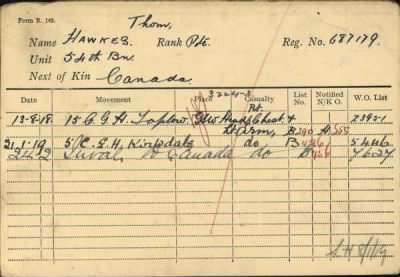 Form R. 149.
Thom,
Name HAWKES. Rank Pte. Reg. No. 687179.
Unit 54th Bn.
Next of Kin Canada.
Date Movement Place Casualty List No. Notified N/K O. W.O. List
13-8-18. 15 C.G.H. Taplow. GSW Head Chest &
Rt Arm, B290 H
21.1.19 5/C.G.H. Kirkdale do B 5446
24.2 Inval. to Canada do 7627